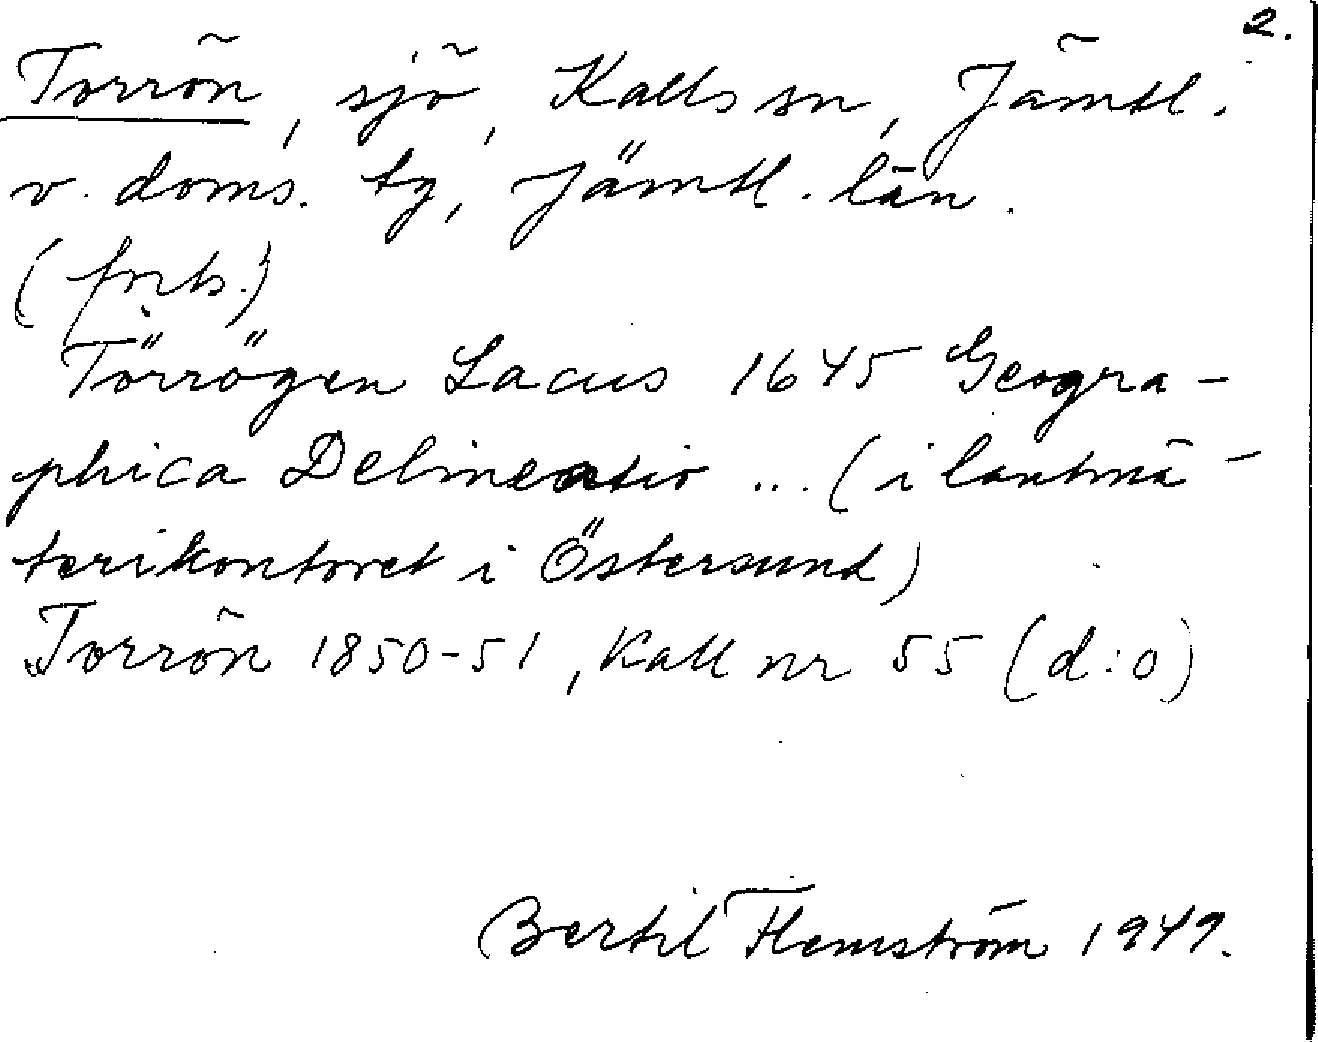 2.
Torrön, sjö, Kalls sn, Jämtl.
v. doms. tg, Jämtl. län.
(forts.)
Törrögen Lacus 1645 Geogra-
phica Delineatio ... (i lantmä-
terikontoret i Östersund)
Torrön 1850-51, Kall nr 55 (d:o)
Bertil Flemström 1949.